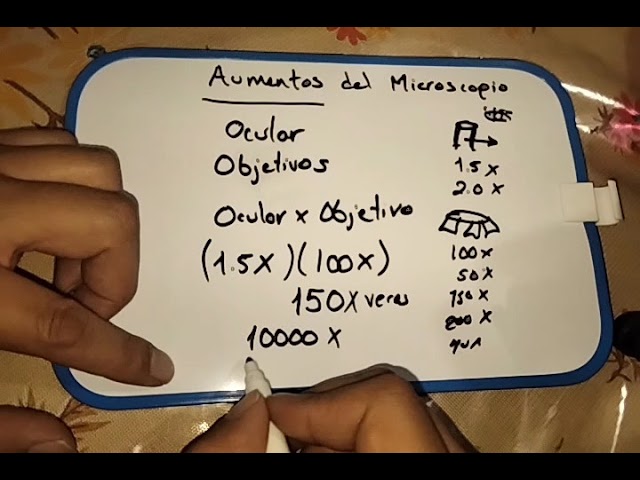 Aumentos del Microscopio
Ocular
Objetivos
1.5 x
2.0 x
Ocular x Objetivo
(1.5X)(100X)
150X veces
10000 X
100 x
50 x
150 x
200 x